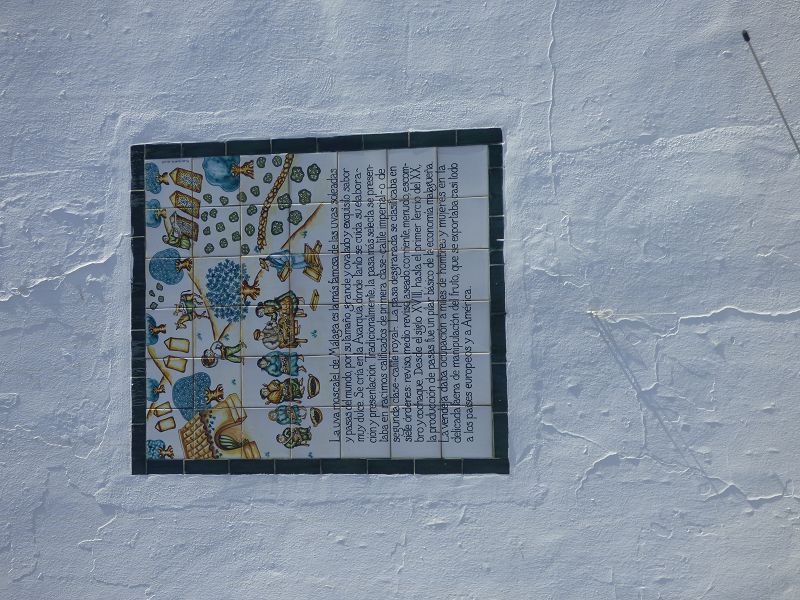 La uva moscatel de Málaga es la más famosa de las uvas soleadas
y pasas del mundo, por su tamaño, grande, y ovalado y exquisito sabor
muy dulce. Se cría en la Axarquía, donde tanto se cuida su elabora-
ción y presentación. Tradicionalmente, la pasa más selecta se presen-
taba en racimos calificados de primera clase -calité imperial- o de
segunda clase -calité royal-. La pasa desgranada se clasificaba en
siete órdenes: reviso, medio reviso, aseado, corriente, menudo, escom-
bro y escombraque. Desde el siglo XVIII hasta el primer tercio del XX,
la producción de pasas fue un pilar básico de la economía malagueña
La vendeja daba ocupación a miles de hombres y mujeres en la
delicada faena de manipulación del fruto, que se exportaba casi todo
a los países europeos y a América.